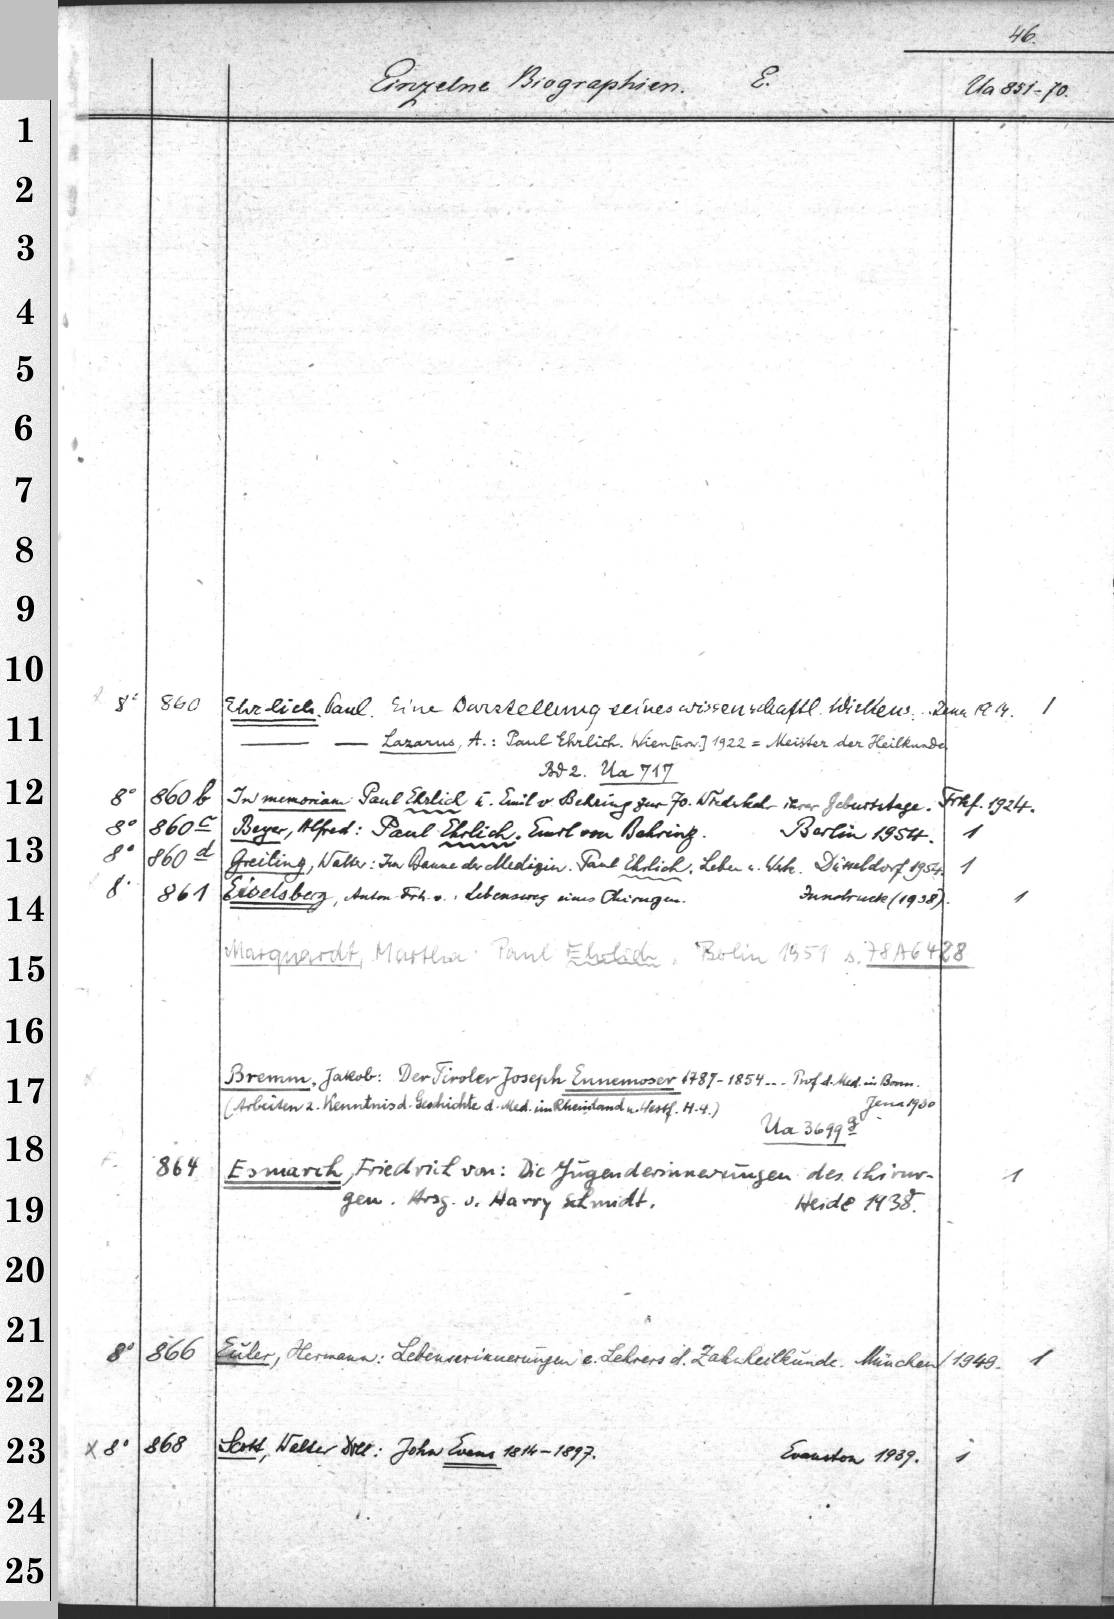 46.
Einzelne Biographien. E. Ua 851-70.
1
2
3
4
5
6
7
8
9
10
8° 860 Ehrlich, Paul. Eine Darstellung seines wissenschaftl. Wirkens. Jena 1914. 1
11
Lazarus, A.: Paul Ehrlich. Wien 1922 = Meister der Heilkunde
Bd 2. Ua 717
12
8° 860 b In memoriam Paul Ehrlich u. Emil v Behring zur 70. Wiederkehr ihrer Geburtstage. Frkf. 1924.
8° 860 c Beyer, Alfred: Paul Ehrlich. Emil von Behring. Berlin 1954. 1
13
8° 860 d Greiling, Walter: Im Banne der Medizin. Paul Ehrlich. Leben u. Werk. Düsseldorf 1954. 1
8° 861 Eiselsberg, Anton Frh. v.: Lebensweg eines Chirurgen. Innsbruck (1938). 1
14
Marquardt, Martha: Paul Ehrlich. Berlin 1951 s. 78A6428
15
16
17
Bremm, Jakob: Der Tiroler Joseph Ennemoser 1787-1854... Prof d. Med. in Bonn.
(Arbeiten z. Kenntnis d. Geschichte d. Med. im Rheinland u. Westf. H. 4.) Jena 1930
Ua 3699 g
18
864 Esmarch, Friedrich von: Die Jugenderinnerungen des Chirur-
gen. Hrsg. v. Harry Schmidt. Heide 1938. 1
19
20
21
8° 866 Euler, Hermann: Lebenserinnerungen e. Lehrers d. Zahnheilkunde. München 1949. 1
22
23
x 8° 868 Scott, Walter Dill: John Evans 1814-1897. Evanston 1939. 1
24
25